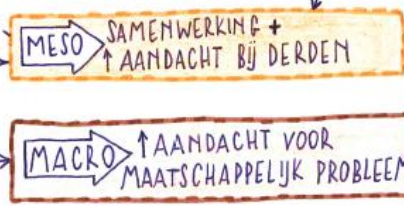 MESO SAMENWERKING +
↑ AANDACHT BIJ DERDEN
MACRO ↑ AANDACHT VOOR
MAATSCHAPPELIJK PROBLEEM